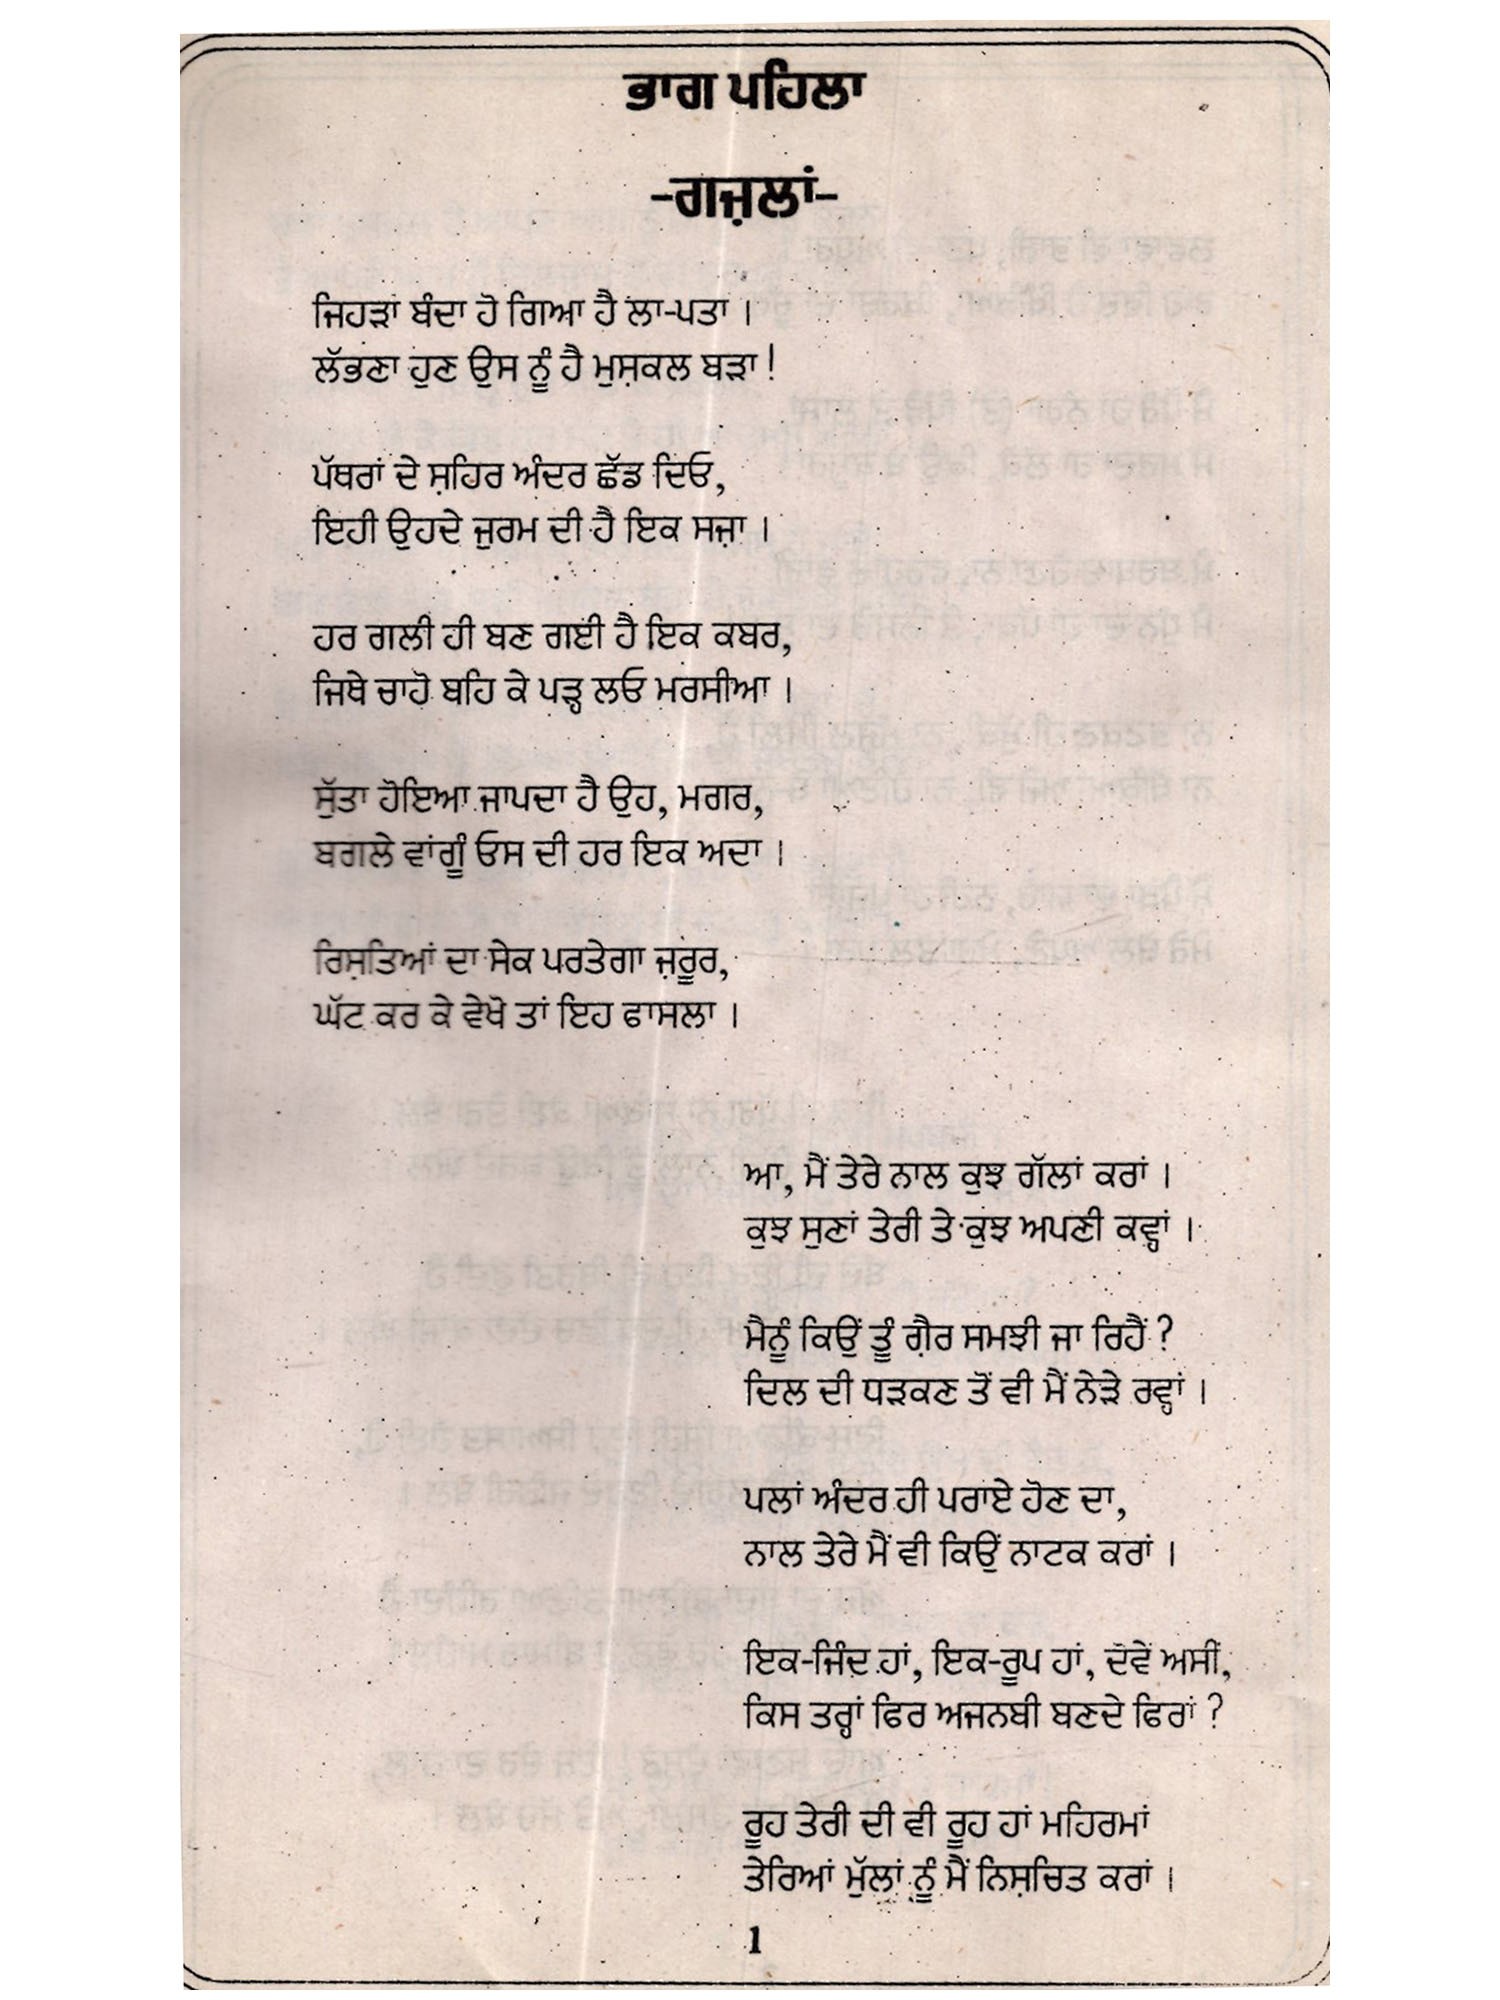 ਭਾਗ ਪਹਿਲਾ
-ਗਜ਼ਲਾਂ-
ਜਿਹੜਾਂ ਬੰਦਾ ਹੋ ਗਿਆ ਹੈ ਲਾ-ਪਤਾ ।
ਲੱਭਣਾ ਹੁਣ ਉਸ ਨੂੰ ਹੈ ਮੁਸ਼ਕਲ ਬੜਾ !
ਪੱਥਰਾਂ ਦੇ ਸ਼ਹਿਰ ਅੰਦਰ ਛੱਡ ਦਿਓ,
ਇਹੀ ਉਹਦੇ ਜੁਰਮ ਦੀ ਹੈ ਇਕ ਸਜ਼ਾ ।
ਹਰ ਗਲੀ ਹੀ ਬਣ ਗਈ ਹੈ ਇਕ ਕਬਰ,
ਜਿਥੇ ਚਾਹੋ ਬਹਿ ਕੇ ਪੜ੍ਹ ਲਓ ਮਰਸੀਆ ।
ਸੁੱਤਾ ਹੋਇਆ ਜਾਪਦਾ ਹੈ ਉਹ, ਮਗਰ,
ਬਗਲੇ ਵਾਂਗੂੰ ਓਸ ਦੀ ਹਰ ਇਕ ਅਦਾ ।
ਰਿਸ਼ਤਿਆਂ ਦਾ ਸੇਕ ਪਰਤੇਗਾ ਜ਼ਰੂਰ,
ਘੱਟ ਕਰ ਕੇ ਵੇਖੋ ਤਾਂ ਇਹ ਫਾਸਲਾ ।
ਆ, ਮੈਂ ਤੇਰੇ ਨਾਲ ਕੁਝ ਗੱਲਾਂ ਕਰਾਂ ।
ਕੁਝ ਸੁਣਾਂ ਤੇਰੀ ਤੇ ਕੁਝ ਅਪਣੀ ਕਵ੍ਹਾਂ ।
ਮੈਨੂੰ ਕਿਉਂ ਤੂੰ ਗ਼ੈਰ ਸਮਝੀ ਜਾ ਰਿਹੈਂ ?
ਦਿਲ ਦੀ ਧੜਕਣ ਤੋਂ ਵੀ ਮੈਂ ਨੇੜੇ ਰਵ੍ਹਾਂ ।
ਪਲਾਂ ਅੰਦਰ ਹੀ ਪਰਾਏ ਹੋਣ ਦਾ,
ਨਾਲ ਤੇਰੇ ਮੈਂ ਵੀ ਕਿਉਂ ਨਾਟਕ ਕਰਾਂ ।
ਇਕ-ਜਿੰਦ ਹਾਂ, ਇਕ-ਰੂਪ ਹਾਂ, ਦੋਵੇਂ ਅਸੀਂ,
ਕਿਸ ਤਰ੍ਹਾਂ ਫਿਰ ਅਜਨਬੀ ਬਣਦੇ ਫਿਰਾਂ ?
ਰੂਹ ਤੇਰੀ ਦੀ ਵੀ ਰੂਹ ਹਾਂ ਮਹਿਰਮਾਂ
ਤੇਰਿਆਂ ਮੁੱਲਾਂ ਨੂੰ ਮੈਂ ਨਿਸ਼ਚਿਤ ਕਰਾਂ ।
1